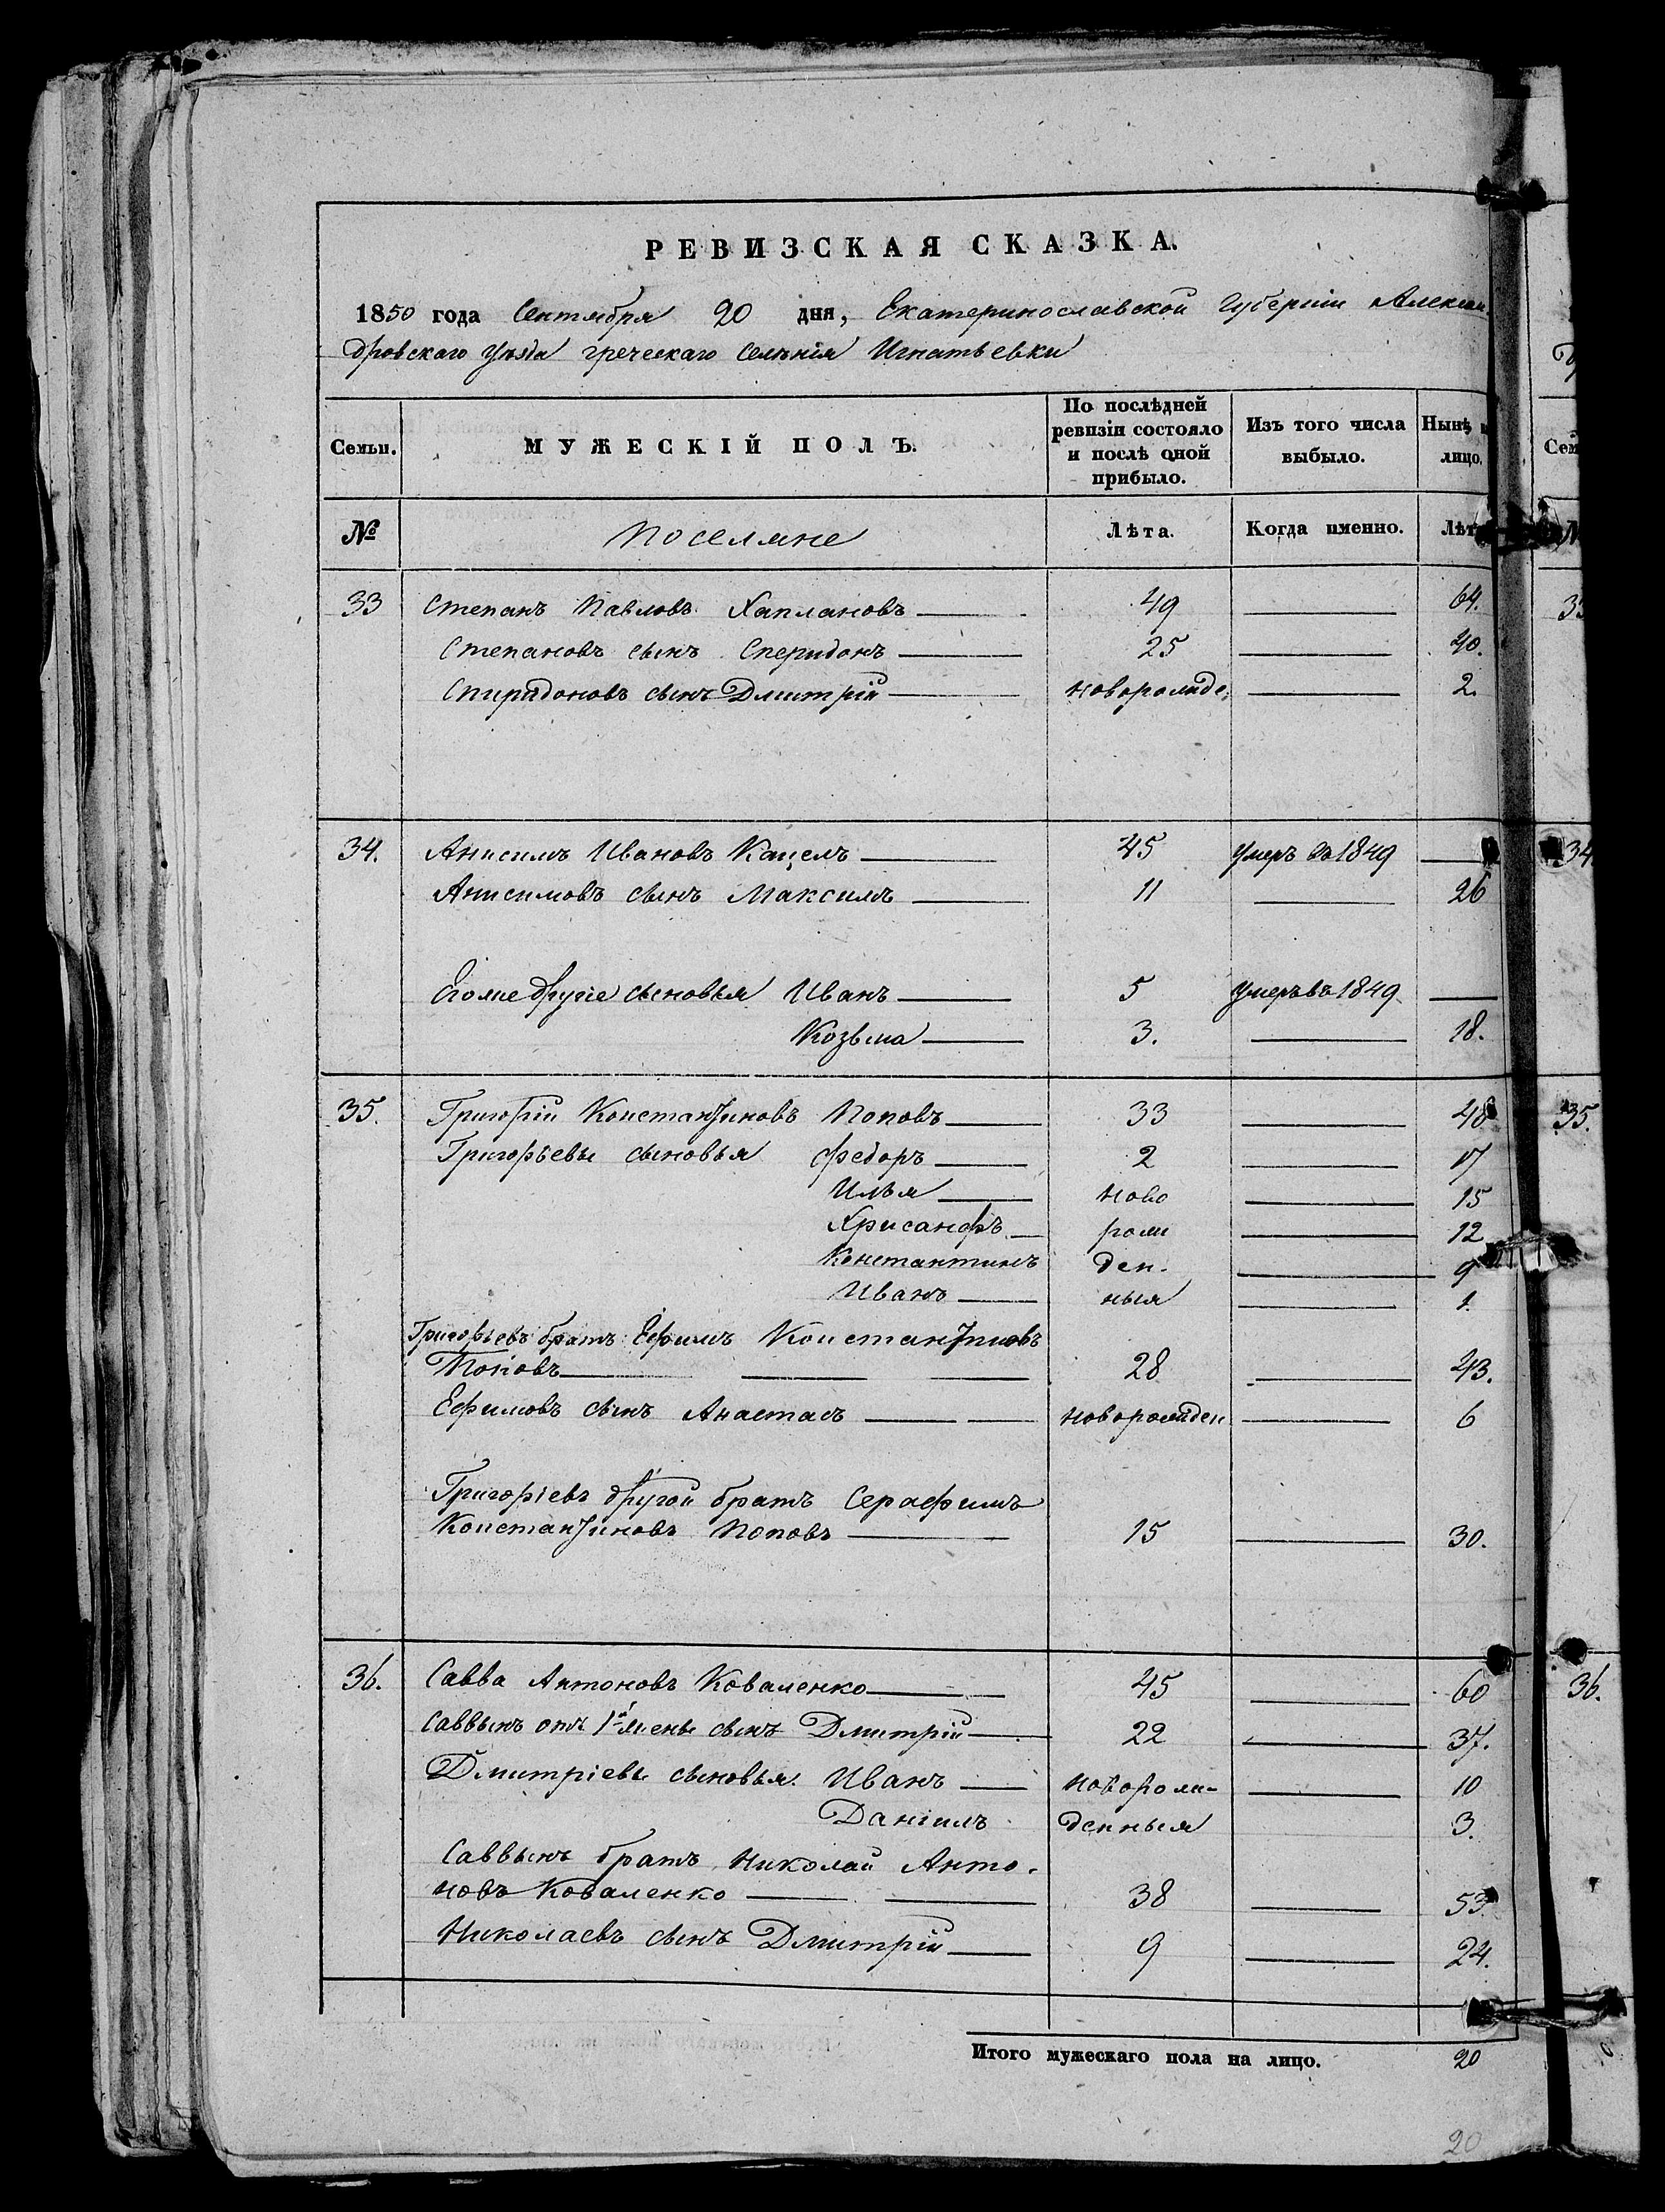 РЕВИЗСКАЯ СКАЗКА.
1850 года Сентября 20 дня, Екатеринославской Губерніи Алексан
дровскаго уѣзда греческаго селѣнія Игнатьевки
Семьи. МУЖЕСКІЙ ПОЛЪ. По послѣдней ревизіи состояло и послѣ оной прибыло. Изъ того числа выбыло. Нынѣ лицо.
№ Поселяне Лѣта. Когда именно. Лѣт
33 Степанъ Павловъ Хаплановъ 49 — 64.
Степановъ сынъ Сперидонъ 25 — 40.
Спиридоновъ сынъ Дмитрій новорожде. — 2.
34. Анисимъ Ивановъ Кацелъ 45 умеръ въ 1849 —
Анисимовъ сынъ Максимъ 11 — 26
Егоже другіе сыновья Иванъ 5 умеръ въ 1849 —
Козьма 3. — 18.
35. Григорій Константиновъ Поповъ 33 — 48
Григорьевы сыновья Федоръ 2 — 17
Илья ново — 15
Хрисанфъ рож — 12
Константинъ ден. — 9
Иванъ ныя — 1.
Григорьевъ братъ Ефимъ Константиновъ
Поповъ 28 — 43.
Ефимовъ сынъ Анастасъ новорожден — 6
Григоріевъ другой братъ Серафимъ
Константиновъ Поповъ 15 — 30.
36. Савва Антоновъ Коваленко 45 — 60
Саввынъ отъ 1й жены сынъ Дмитрій 22 — 37.
Дмитріевы сыновья Иванъ новорож- — 10
Даніилъ денныя — 3.
Саввынъ братъ Николай Анто.
новъ Коваленко 38 — 53
Николаевъ сынъ Дмитрій 9 — 24.
Итого мужескаго пола на лицо. 20
20
Сем
33
34
35.
36.